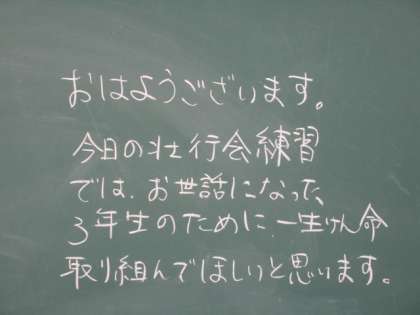 おはようございます。
今日の壮行会練習
では、お世話になった、
3年生のために、一生けん命
取り組んでほしいと思います。